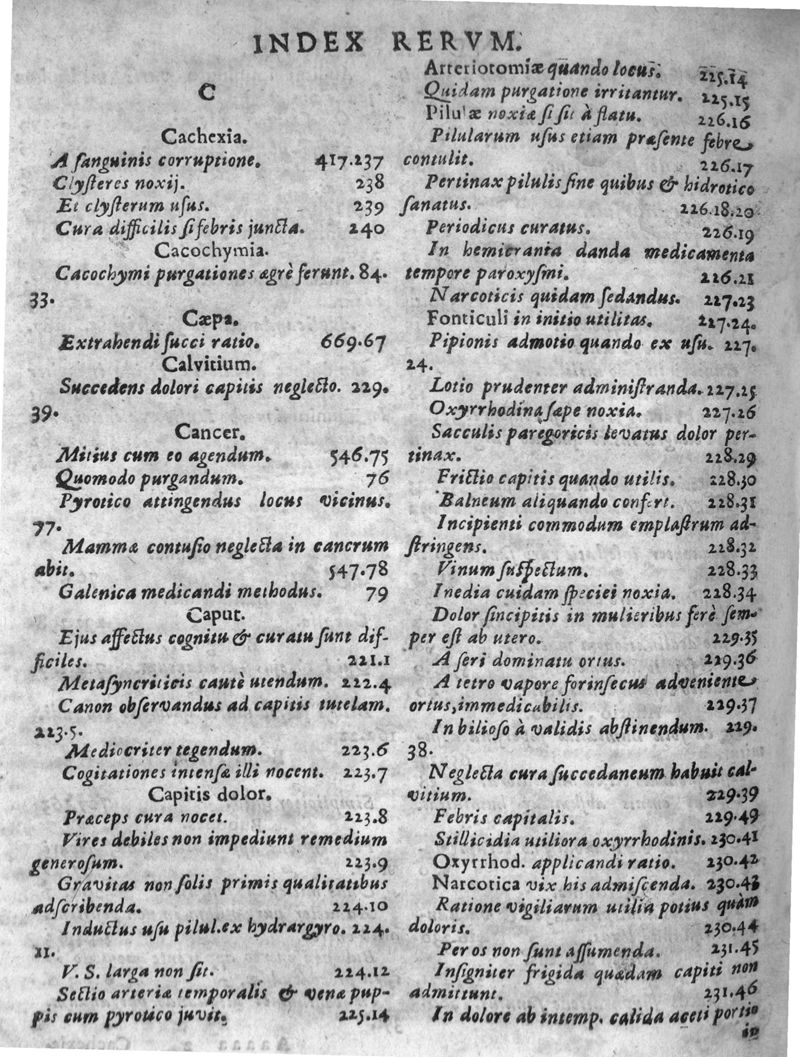 INDEX RERVM.
C
Cachexia.
A ſanguinis corruptione. 417.237
Clyſteres noxij. 238
Et clyſterum uſus. 239
Cura difficilis ſi febris juncta. 240
Cacochymia.
Cacochymi purgationes ægrè ferunt. 84.
33.
Cæpa.
Extrahendi ſucci ratio. 669.67
Calvitium.
Succedens dolori capitis neglecto. 229.
39.
Cancer.
Mitius cum eo agendum. 546.75
Quomodo purgandum. 76
Pyrotico attingendus locus vicinus.
77.
Mammæ contuſio neglecta in cancrum
abit. 547.78
Galenica medicandi methodus. 79
Caput.
Ejus affectus cognitu & curatu ſunt dif-
ficiles. 221.1
Metaſyncriticis cautè utendum. 222.4
Canon obſervandus ad capitis tutelam.
223.5.
Mediocriter tegendum. 223.6
Cogitationes intenſæ illi nocent. 223.7
Capitis dolor.
Præceps cura nocet. 223.8
Vires debiles non impediunt remedium
generoſum. 223.9
Gravitas non ſolis primis qualitatibus
adſcribenda. 224.10
Inductus uſu pilul.ex hydrargyro. 224.
11.
V. S. larga non ſit. 224.12
Sectio arteriæ temporalis & venæ pup-
pis cum pyrotico juvit. 225.14
Arteriotomiæ quando locus. 225.14
Quidam purgatione irritantur. 225.15
Pilulæ noxiæ ſi ſit à flatu. 226.16
Pilularum uſus etiam præſente febre
contulit. 226.17
Pertinax pilulis ſine quibus & hidrotico
ſanatus. 226.18.20
Periodicus curatus. 226.19
In hemicrania danda medicamenta
tempore paroxyſmi. 226.21
Narcoticis quidam ſedandus. 227.23
Fonticuli in initio utilitas. 227.24.
Pipionis admotio quando ex uſu. 227.
24.
Lotio prudenter adminiſtranda. 227.25
Oxyrrhodina ſæpe noxia. 227.26
Sacculis paregoricis levatus dolor per-
tinax. 228.29
Frictio capitis quando utilis. 228.30
Balneum aliquando confert. 228.31
Incipienti commodum emplaſtrum ad-
ſtringens. 228.32
Vinum ſuſpectum. 228.33
Inedia cuidam ſpeciei noxia. 228.34
Dolor ſincipitis in mulieribus ferè ſem-
per eſt ab utero. 229.35
A ſeri dominatu ortus. 229.36
A tetro vapore forinſecus adveniente
ortus,immedicabilis. 229.37
In bilioſo à validis abſtinendum. 229.
38.
Neglecta cura ſuccedaneum habuit cal-
vitium. 229.39
Febris capitalis. 229.49
Stillicidia utiliora oxyrrhodinis. 230.41
Oxyrrhod. applicandi ratio. 230.42
Narcotica vix his admiſcenda. 230.43
Ratione vigiliarum utilia potius quàm
doloris. 230.44
Per os non ſunt aſſumenda. 231.45
Inſigniter frigida quædam capiti non
admittunt. 231.46
In dolore ab intemp. calida aceti portio